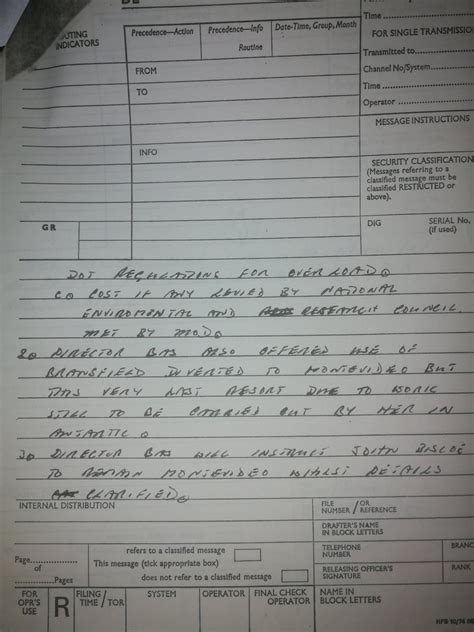 DE
Time
ROUTING INDICATORS
Precedence—Action
Precedence—Info
Routine
Date-Time, Group, Month
FOR SINGLE TRANSMISSION
Transmitted to
Channel No/System
Time
Operator
MESSAGE INSTRUCTIONS
FROM
TO
INFO
SECURITY CLASSIFICATION
(Messages referring to a
classified message must be
classified RESTRICTED or
above).
GR
DIG
SERIAL No.
(if used)
DOT REGULATIONS FOR OVERLOAD
C COST IF ANY LEVIED BY NATIONAL
ENVIROMENTAL AND RESEARCH COUNCIL
MET BY MOD
2 DIRECTOR BAS ALSO OFFERED USE OF
BRANSFIELD DIVERTED TO MONTEVIDEO BUT
THIS VERY LAST RESORT DUE TO WORK
STILL TO BE CARRIED OUT BY HER IN
ANTARTIC
3 DIRECTOR BAS WILL INSTRUCT JOHN BISCOE
TO REMAIN MONTEVIDEO WHILST DETAILS
CLARIFIED
INTERNAL DISTRIBUTION
FILE / OR
NUMBER / REFERENCE
DRAFTER'S NAME
IN BLOCK LETTERS
refers to a classified message
This message (tick appropriate box)
does not refer to a classified message
Page
of
Pages
TELEPHONE
NUMBER
BRANC
RELEASING OFFICER'S
SIGNATURE
RANK
FOR
OPR'S
USE
R
FILING / TOR
TIME
SYSTEM
OPERATOR
FINAL CHECK
OPERATOR
NAME IN
BLOCK LETTERS